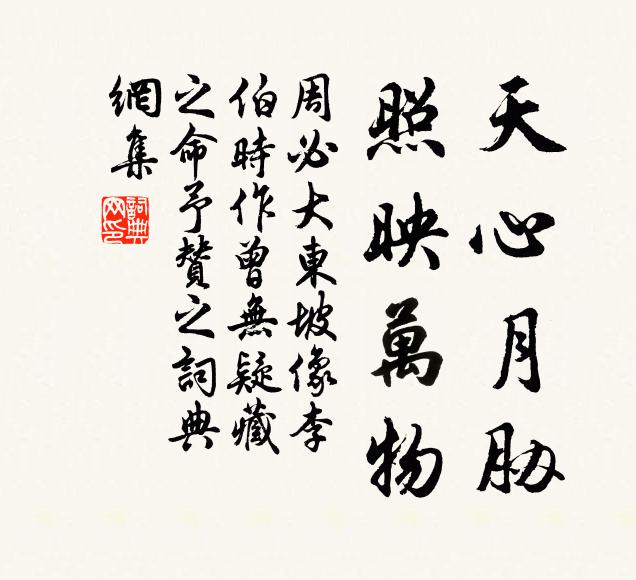 天心月胁
照映萬物
周必大東坡像李
伯時作曾無疑藏
之命予贊之詞典
網集
詞典網印